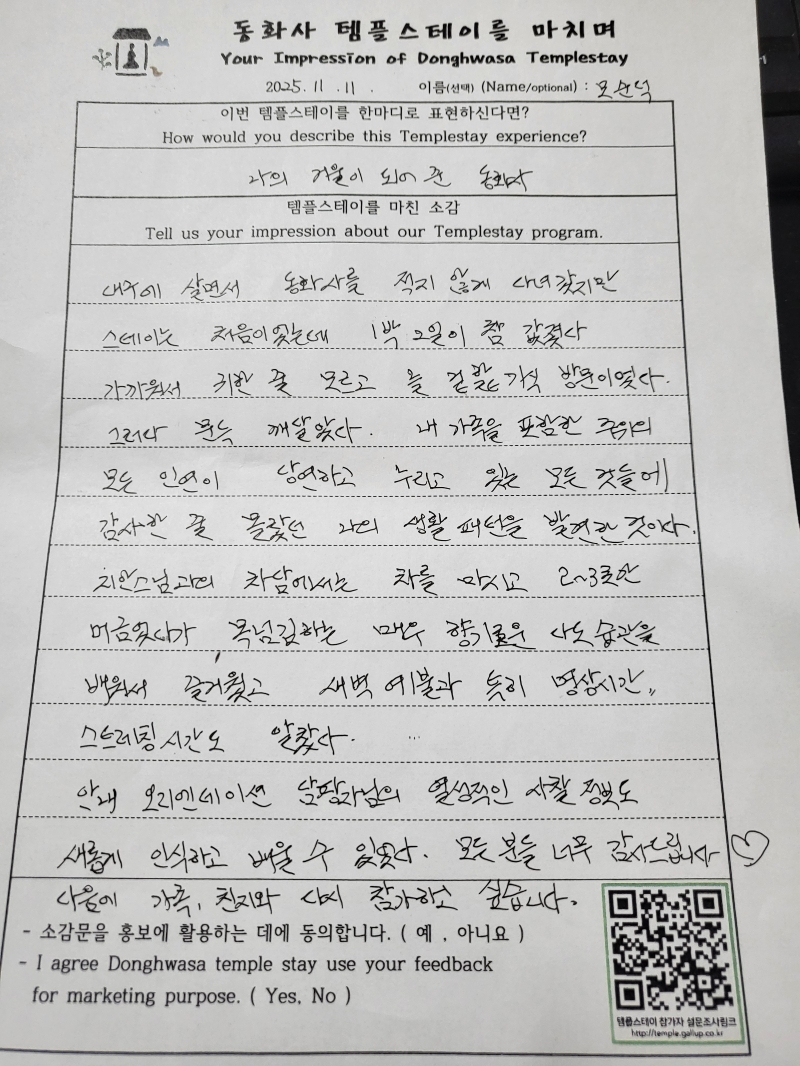 동화사 템플스테이를 마치며
Your Impression of Donghwasa Templestay
2025. 11 . 11 . 이름(선택) (Name/optional) :
이번 템플스테이를 한마디로 표현하신다면?
How would you describe this Templestay experience?
나의 거울이 되어 준 동화사
템플스테이를 마친 소감
Tell us your impression about our Templestay program.
대구에 살면서 동화사를 적지 않게 다녀갔지만
스테이는 처음이었는데 1박 2일이 참 값졌다
가까워서 귀한 줄 모르고 늘 겉핥기식 방문이였다.
그러다 문득 깨달았다. 내 가족을 포함한 주위의
모든 인연이 당연하고 누리고 있는 모든 것들에
감사한 줄 몰랐던 나의 생활 패턴을 발견한 것이다.
지안스님과의 차담에서는 차를 마시고 2~3초만
머금었다가 목넘김하는 매우 향기로운 다도 습관을
배워서 즐거웠고 새벽 예불과 특히 명상시간,,
스트레칭시간도 알찼다.
안내 오리엔테이션 담당자님의 열성적인 사찰 정보도
새롭게 인식하고 배울 수 있었다. 모든 분들 너무 감사드립니다 ♡
다음에 가족, 친지와 다시 참가하고 싶습니다.
- 소감문을 홍보에 활용하는 데에 동의합니다. ( 예 , 아니요 )
- I agree Donghwasa temple stay use your feedback
for marketing purpose. ( Yes, No )
템플스테이 참가자 설문조사링크
http://temple.gallup.co.kr